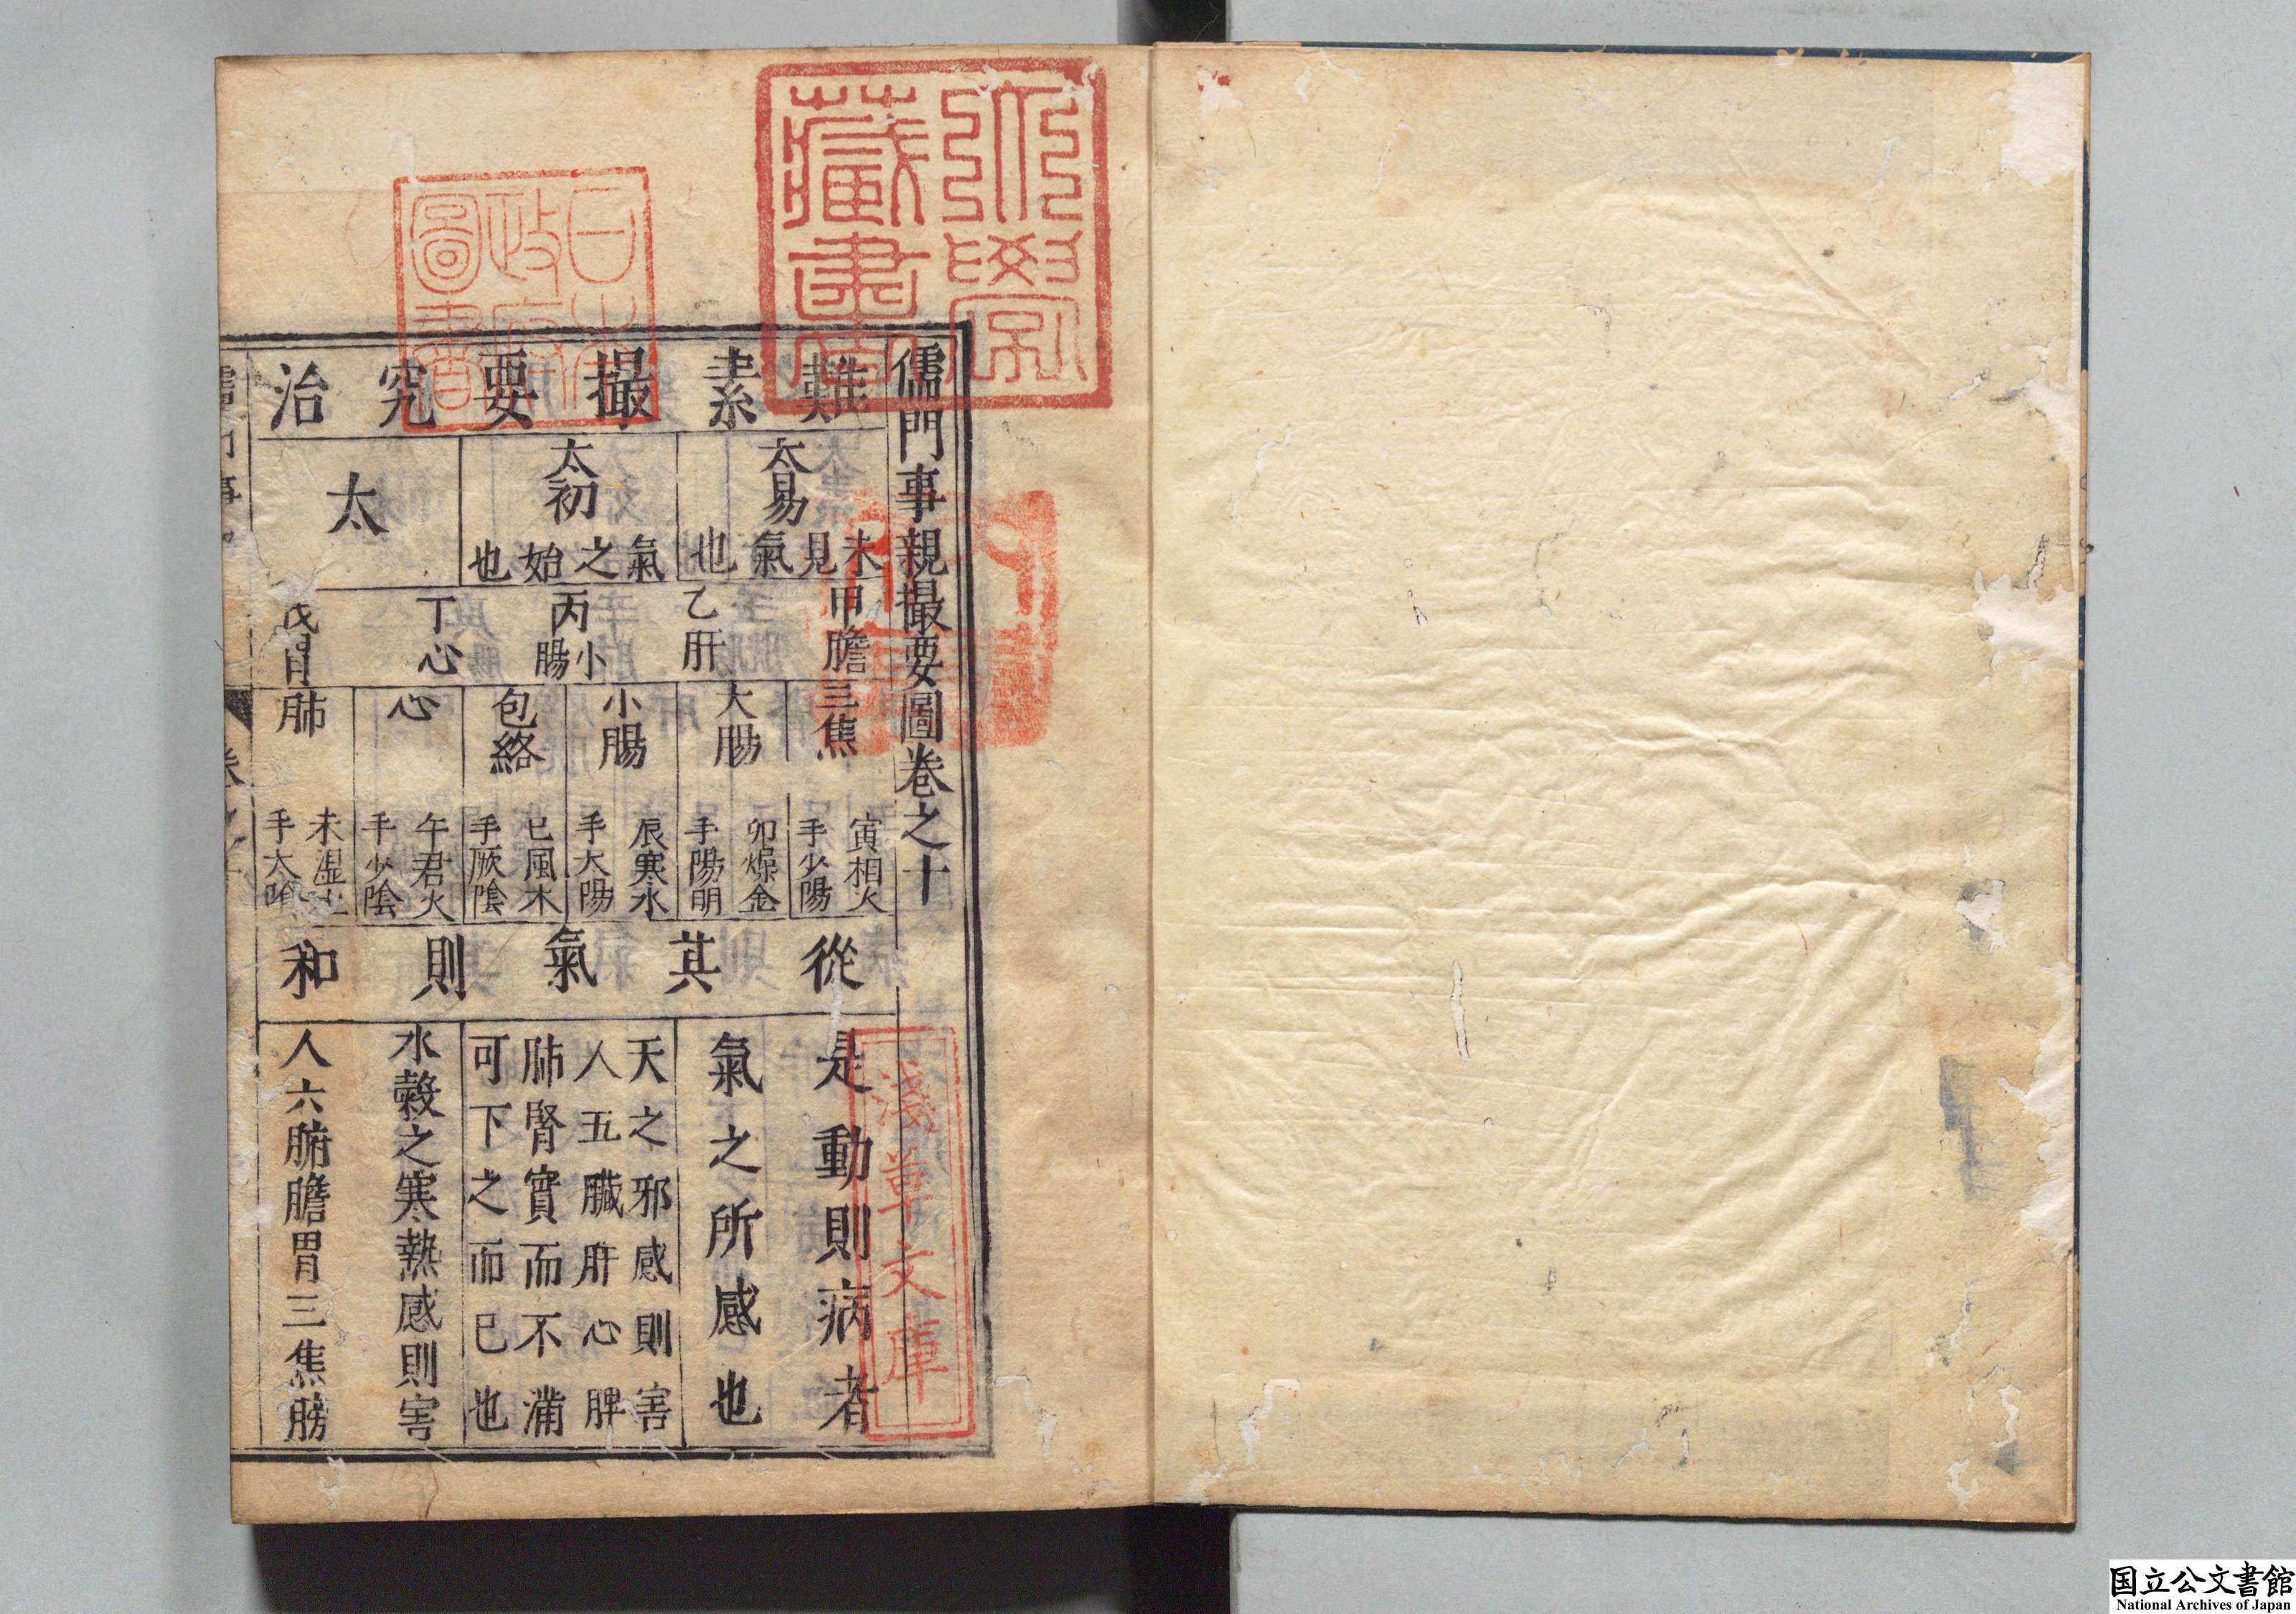 儒門事親撮要圖卷之十
難素撮要究治
太易
未見氣也
太初
氣之始也
太
甲膽
乙肝
丙小腸
丁心
戊胃
三焦
大腸
小腸
包絡
心
肺
寅相火
手少陽
卯燥金
手陽明
辰寒水
手太陽
巳風木
手厥陰
午君火
手少陰
未濕土
手太陰
從其氣則和
是動則病者
氣之所感也
天之邪感則害
人五臟肝心脾
肺腎實而不滿
可下之而已也
水穀之寒熱感則害
人六腑膽胃三焦膀
日本政府圖書
淺草文庫
国立公文書館
National Archives of Japan